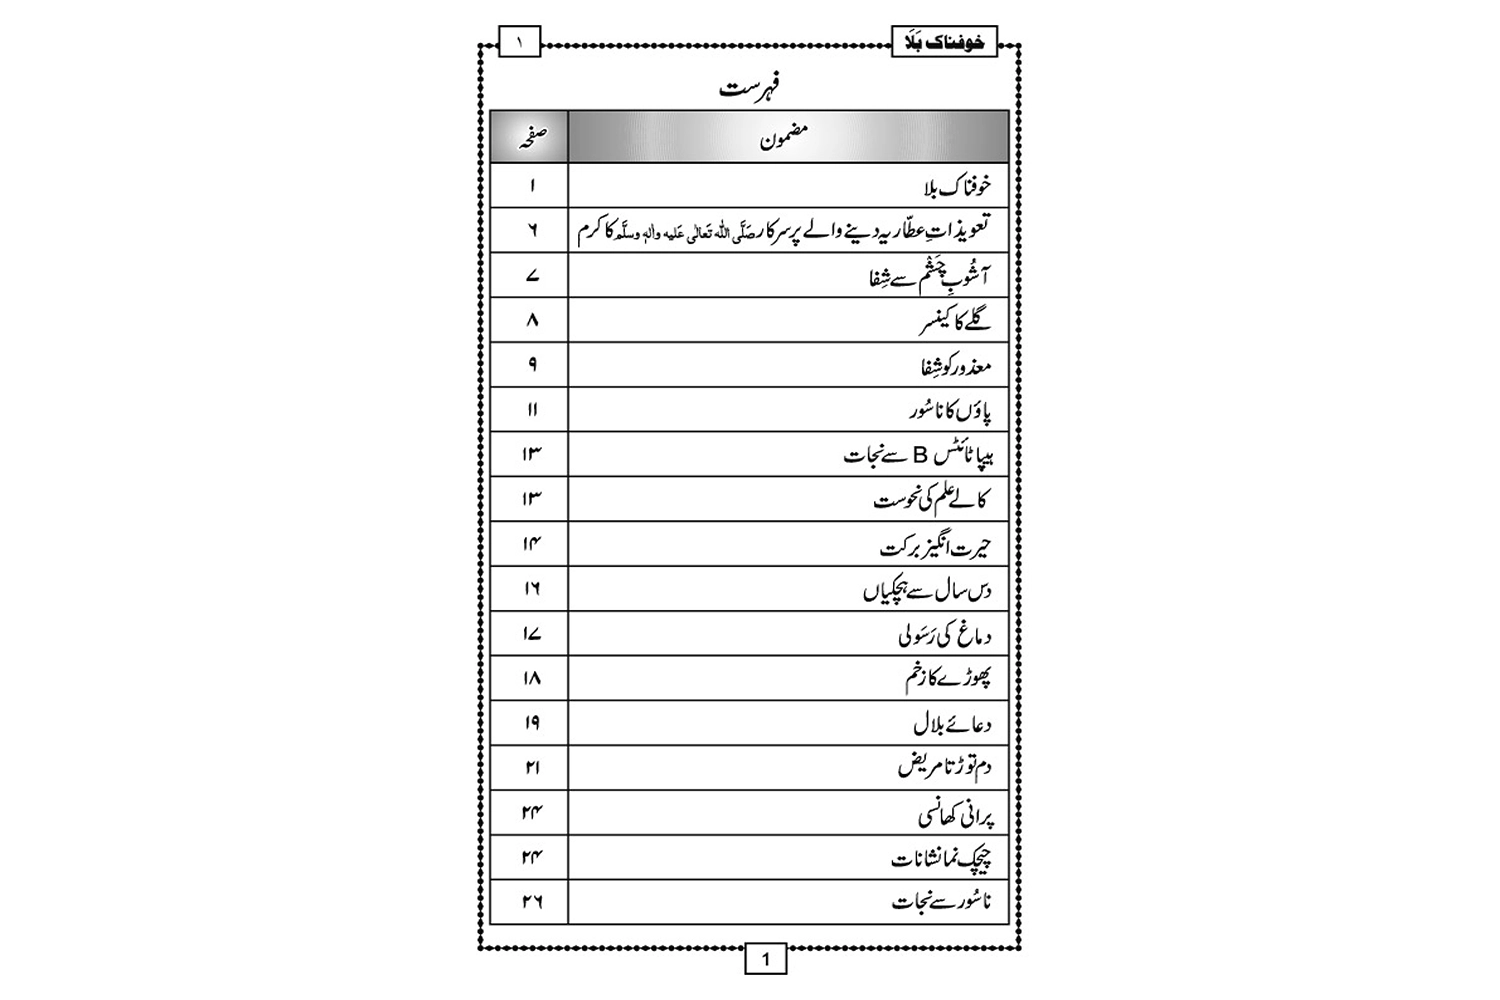 خوفناک بَلَا ۱
فہرست
مضمون صفحہ
خوفناک بلا ۱
تعویذاتِ عطّاریہ دینے والے پر سرکار صَلَّی اللہ تَعالٰی عَلیه واٰلہٖ وسلَّم کا کرم ۶
آشُوبِ چَشْم سے شِفا ۷
گلے کا کینسر ۸
معذور کو شِفا ۹
پاؤں کا ناسُور ۱۱
ہیپاٹائٹس B سے نجات ۱۳
کالے علم کی نحوست ۱۳
حیرت انگیز برکت ۱۴
دس سال سے ہچکیاں ۱۶
دماغ کی رَسَولی ۱۷
پھوڑے کا زخم ۱۸
دعائے بلال ۱۹
دم توڑتا مریض ۲۱
پرانی کھانسی ۲۴
چیچک نما نشانات ۲۴
ناسُور سے نجات ۲۶
1